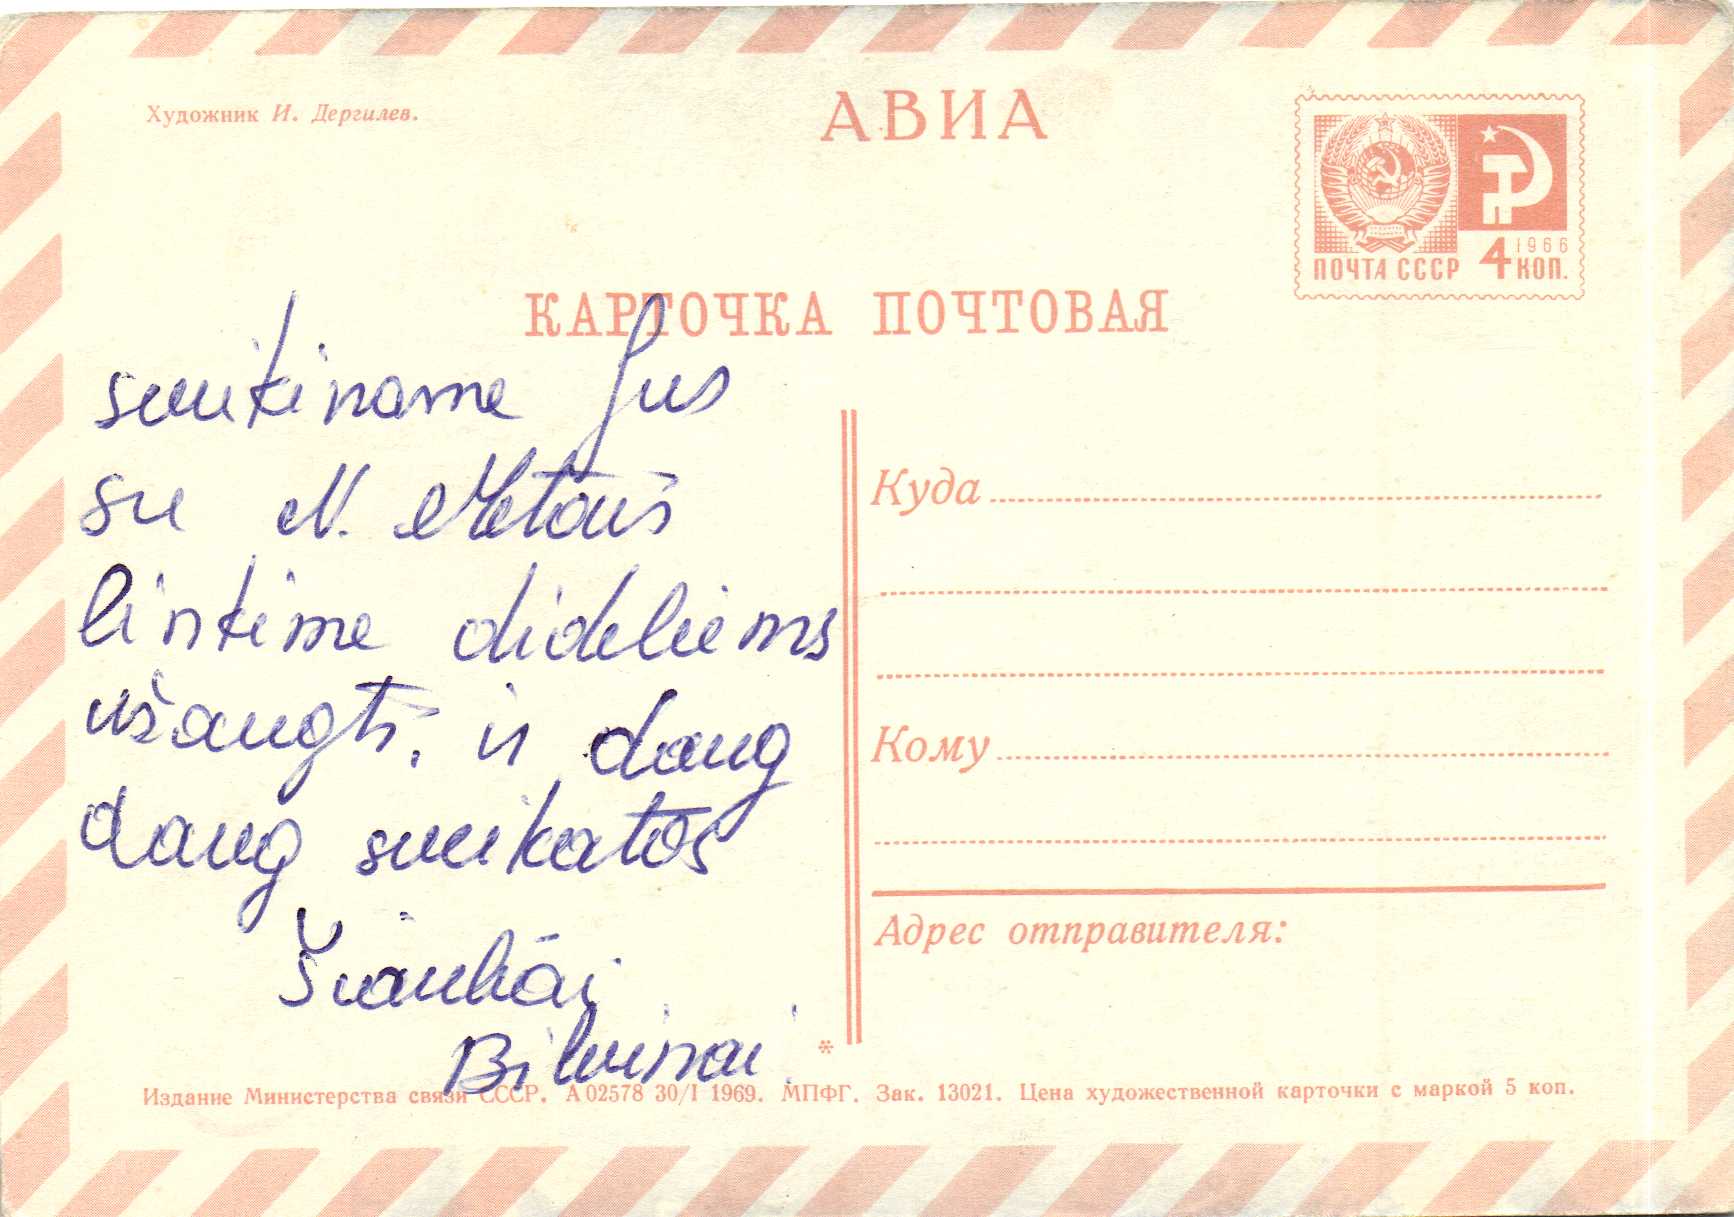 Художник И. Дергилев.
АВИА
1966
ПОЧТА СССР 4 КОП.
КАРТОЧКА ПОЧТОВАЯ
sveikiname Jus
su N. Metais
linkime dideliems
užaugti, ir daug
daug sveikatos
Šiauliai
Куда
Кому
Адрес отправителя:
Издание Министерства связи СССР. А 02578 30/I 1969. МПФГ. Зак. 13021. Цена художественной карточки с маркой 5 коп.